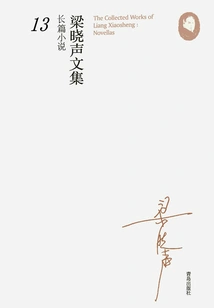 The Collected Works of
Liang Xiaosheng :
Novellas
13
长篇小说
梁晓声文集
梁晓声
青岛出版社